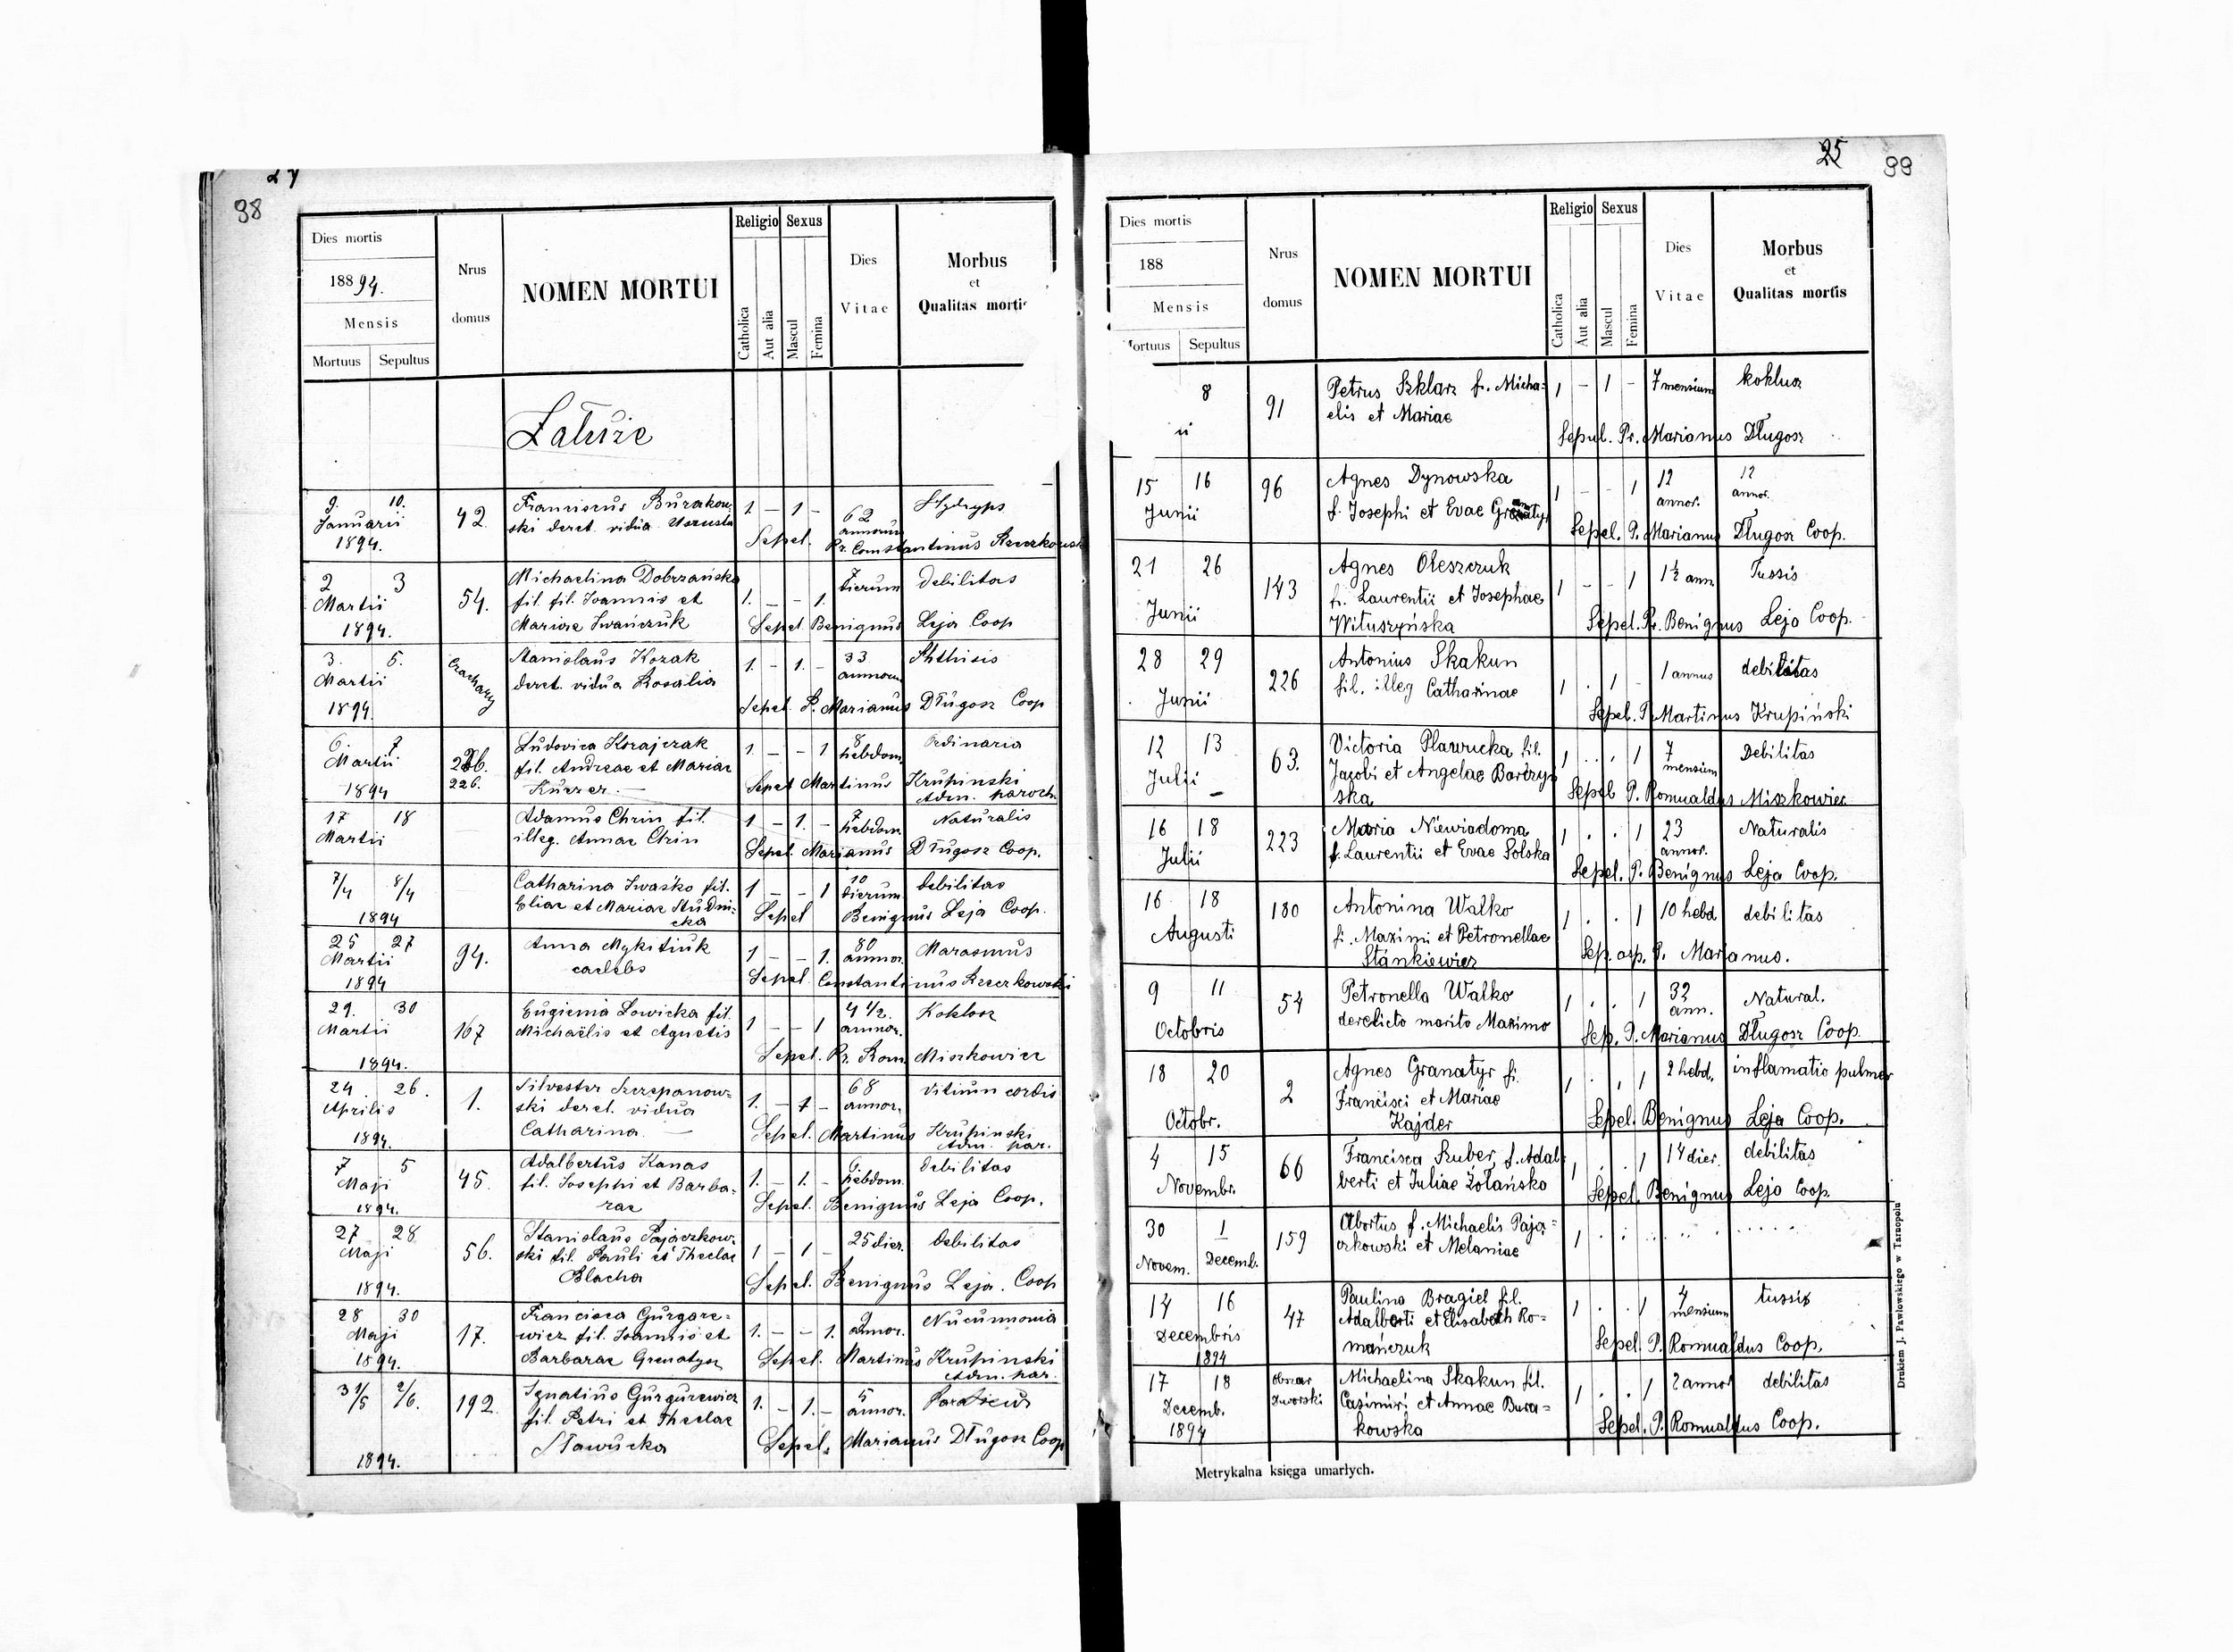 98
Dies mortis
18894.
Mensis
Mortuus Sepultus
Nrus domus
NOMEN MORTUI
Religio
Catholica
Aut alia
Sexus
Mascul
Femina
Dies Vitae
Morbus
et
Qualitas mortis
Łatusze
9. 10. Januarii 1894.
42.
Franciscus Burakow-
ski derel. vidua Ursusla
1. – 1 –
62 annorum
Hydryps
Sepel. Pr. Constantinus
2 3 Martii 1894.
54.
Michaelina Dobrzańska
fil. fil. Joannis et
Mariae Iwańczuk
1. – – 1.
7 dierum
debilitas
Sepel Benignus Leja Coop
3. 5. Martii 1894.
Stanislaus Kozak
derel. vidua Rosalia
1. – 1. –
33 annorum
Phthisis
Sepel. P. Marianus Długosz Coop
6. 7 Martii 1894
226.
Ludovica Krajczak
fil. Andreae et Mariae
Kurzer. —
1. – – 1
8 hebdom
Ordinaria
Sepel Martinus Krupinski
Adm. paroch.
17 18 Martii
Adamus Chrin fil.
illeg. Annae Chrin
1 – 1. –
7 hebdom.
Naturalis
Sepel. Marianus Długosz Coop.
7/4 8/4 1894
Catharina Iwaśko fil.
Eliae et Mariae Studni-
cka
1 – – 1
10 dierum
debilitas
Sepel Benignus Leja Coop.
25 27 Martii 1894
94.
Anna Mykitiuk
caelebs
1 – – 1.
80 annor.
Marasmus
Sepel Constantinus
29. 30 Martii 1894.
167
Eugienia Łowicka fil.
Michaëlis et Agnetis
1 – – 1
4 1/2. annor.
Koklosz
Sepel. Pr. Rom. Miszkowicz
24. 26. Aprilis 1894.
1.
Silvester Szczepanow-
ski derel. vidua
Catharina. —
1. – 1 –
68 annor.
Vitium cordis
Sepel. Martinus Krupinski
Adm. par.
7 5 Maji 1894.
45.
Adalbertus Kanas
fil. Josephi et Barba-
rae
1. – 1. –
6. hebdom.
debilitas
Sepel. Benignus Leja Coop.
27 28 Maji 1894.
56.
Stanislaus Pajaczkow-
ski fil. Pauli et Theclae
Blacha
1 – 1 –
25 dier.
debilitas
Sepel. Benignus Leja. Coop
28 30 Maji 1894.
17.
Francisca Gurgure-
wicz fil. Joannis et
Barbarae Grenatyr
1. – – 1.
9 annor.
Sepel. Martinus Krupinski
Adm. par.
31/5 2/6. 1894.
192
Ignatius Gurgurewicz
fil. Petri et Theclae
Sławucka
1. – 1. –
5 annor.
Sepel. Marianus Długosz Coop
25 99
Dies mortis
188
Mensis
Mortuus Sepultus
Nrus domus
NOMEN MORTUI
Religio
Catholica
Aut alia
Sexus
Mascul
Femina
Dies Vitae
Morbus
et
Qualitas mortis
8
91
Petrus Szklarz f. Micha-
elis et Mariae
1 – 1 –
7 mensium
koklusz
Sepul. Pr. Marianus Długosz
15 16 Junii
96
Agnes Dynowska
f. Josephi et Evae Granatyr
1 – – 1
12 annor.
12 annor.
Sepel. P. Marianus Długosz Coop.
21 26 Junii
143
Agnes Oleszczuk
f. Laurentii et Josephae
Wituszyńska
1 – – 1
1½ ann
Tussis
Sepel. Pr. Benignus Leja Coop.
28 29 Junii
226
Antonius Skakun
fil. illeg Catharinae
1 . 1 –
1 annus
debilitas
Sepel. P. Martinus Krupiński
12 13 Julii
63.
Victoria Pławucka fil.
Jacobi et Angelae Bartzyń
ska
1 . . 1
7 mensium
Debilitas
Sepel P. Romualdus Miszkowiec
16 18 Julii
223
Maria Niewiadoma
f. Laurentii et Evae Solska
1 . . 1
23 annor.
Naturalis
Sepel. P. Benignus Leja Coop.
16 18 Augusti
180
Antonina Walko
fi. Maximi et Petronellae
Stankiewicz
1 . . 1
10 hebd
debilitas
Sep. asp. P. Marianus.
9 11 Octobris
54
Petronella Walko
derelicto marito Maximo
1 . . 1
32 ann.
Natural.
Sep. P. Marianus Długosz Coop.
18 20 Octobr.
2
Agnes Granatyr fi.
Francisci et Mariae
Kajder
1 . . 1
2 hebd.
inflamatio pulmor
Sepel. Benignus Leja Coop.
4 15 Novembr.
66
Francisca Szuber, f. Adal
berti et Juliae Żolańsko
1 . . 1
14 dier.
debilitas
Sepel. Benignus Lejo Coop.
30 1 Novem. Decemb.
159
Abortus f. Michaelis Pają-
czkowski et Melaniae
1
14 16 Decembris 1894
47
Paulina Bragiel fil.
Adalberti et Elisabeth Ro-
mańczuk
1 . . 1
4 mensium
tussis
Sepel. P. Romualdus Coop.
17 18 Decemb. 1894
obszar Dworski
Michaelina Skakun fil.
Casimiri et Annae Bura-
kowska
1 . . 1
2 annor
debilitas
Sepel. P. Romualdus Coop.
Metrykalna księga umarłych.
Drukiem J. Pawłowskiego w Tarnopolu